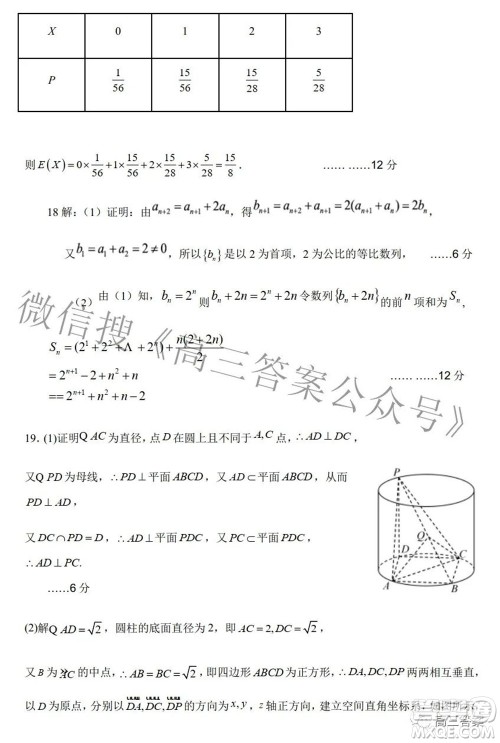 X 0 1 2 3
P 1/56 15/56 15/28 5/28
则E(X)=0×1/56+1×15/56+2×15/28+3×5/28=15/8. …… ……12 分
18 解:(1)证明:由a_{n+2}=a_{n+1}+2a_n,得b_{n+1}=a_{n+2}+a_{n+1}=2(a_{n+1}+a_n)=2b_n,
又b_1=a_1+a_2=2≠0,所以{b_n}是以 2 为首项,2 为公比的等比数列, ……6 分
(2)由(1)知,b_n=2^n 则b_n+2n=2^n+2n 令数列{b_n+2n}的前n项和为S_n,
S_n=(2^1+2^2+Λ+2^n)+n(2+2n)/2
=2^{n+1}-2+n^2+n …… ……12 分
==2^{n+1}+n^2+n-2
19. (1)证明Q AC为直径,点D在圆上且不同于A,C点,∴AD⊥DC,
又Q PD为母线,∴PD⊥平面ABCD,又AD⊂平面ABCD,从而
PD⊥AD,
又DC∩PD=D,∴AD⊥平面PDC,又PC⊂平面PDC,
∴AD⊥PC.
……6 分
P
Q
D
C
A
B
(2)解Q AD=√2,圆柱的底面直径为 2,即AC=2,DC=√2,
又B为的中点,∴AB=BC=√2,即四边形ABCD为正方形,∴DA,DC,DP两两相互垂直,
以D为原点,分别以DA,DC,DP的方向为x,y,z轴正方向,建立空间直角坐标系,如图所示,
微信搜《高三答案公众号》
高三答案